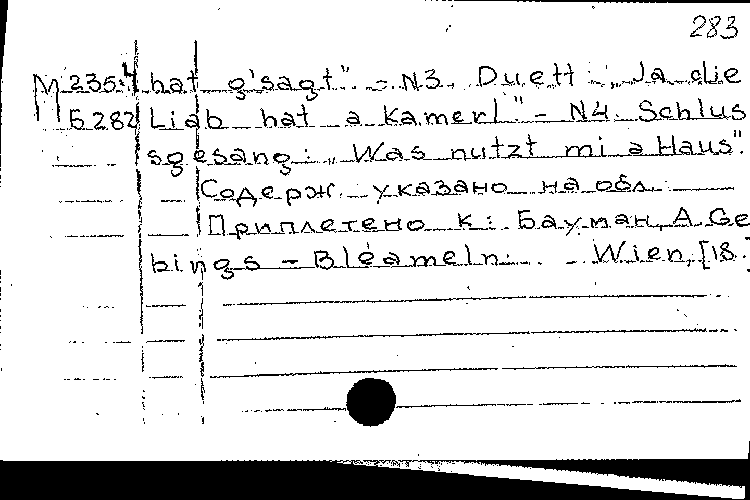 283
М 235.4 hat g'sagt" - N3. Duett: „Ja die
Б 282 Liab hat a Kamerl" - N4. Schlus
sgesang: „Was nutzt mi a Haus".
Содерж. указано на обл.
Приплетено к: Бауман, А. Ge
bings - Bléameln. - Wien, [18.